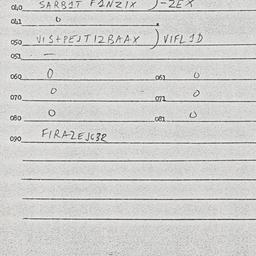 040 SARB1T F1NZIX )-ZEX
041 0
050 VIS+PEJTIZBAAX ) VIFL1D
051 —
060 0 061 0
070 0 071 0
080 0 081 0
090 FIRAZEJG3R